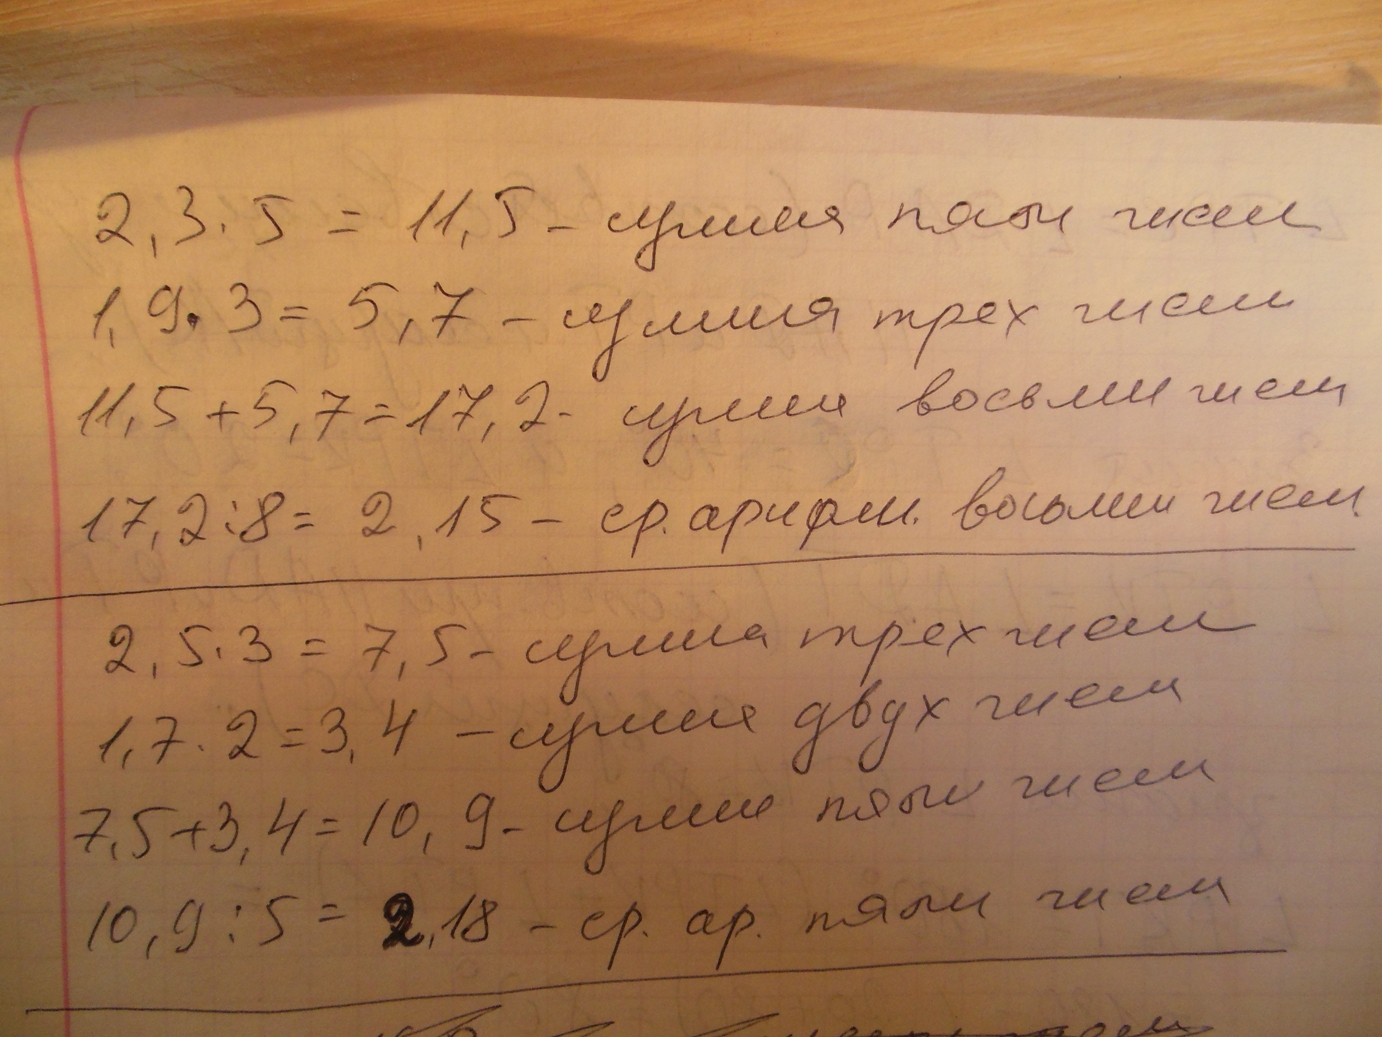 2,3·5 = 11,5 - сумма пяти чисел
1,9·3 = 5,7 - сумма трех чисел
11,5+5,7=17,2- сумма восьми чисел
17,2:8= 2,15 - ср. арифм. восьми чисел
2,5·3 = 7,5 - сумма трех чисел
1,7·2=3,4 - сумма двух чисел
7,5+3,4=10,9- сумма пяти чисел
10,9:5= 2,18 - ср. ар. пяти чисел